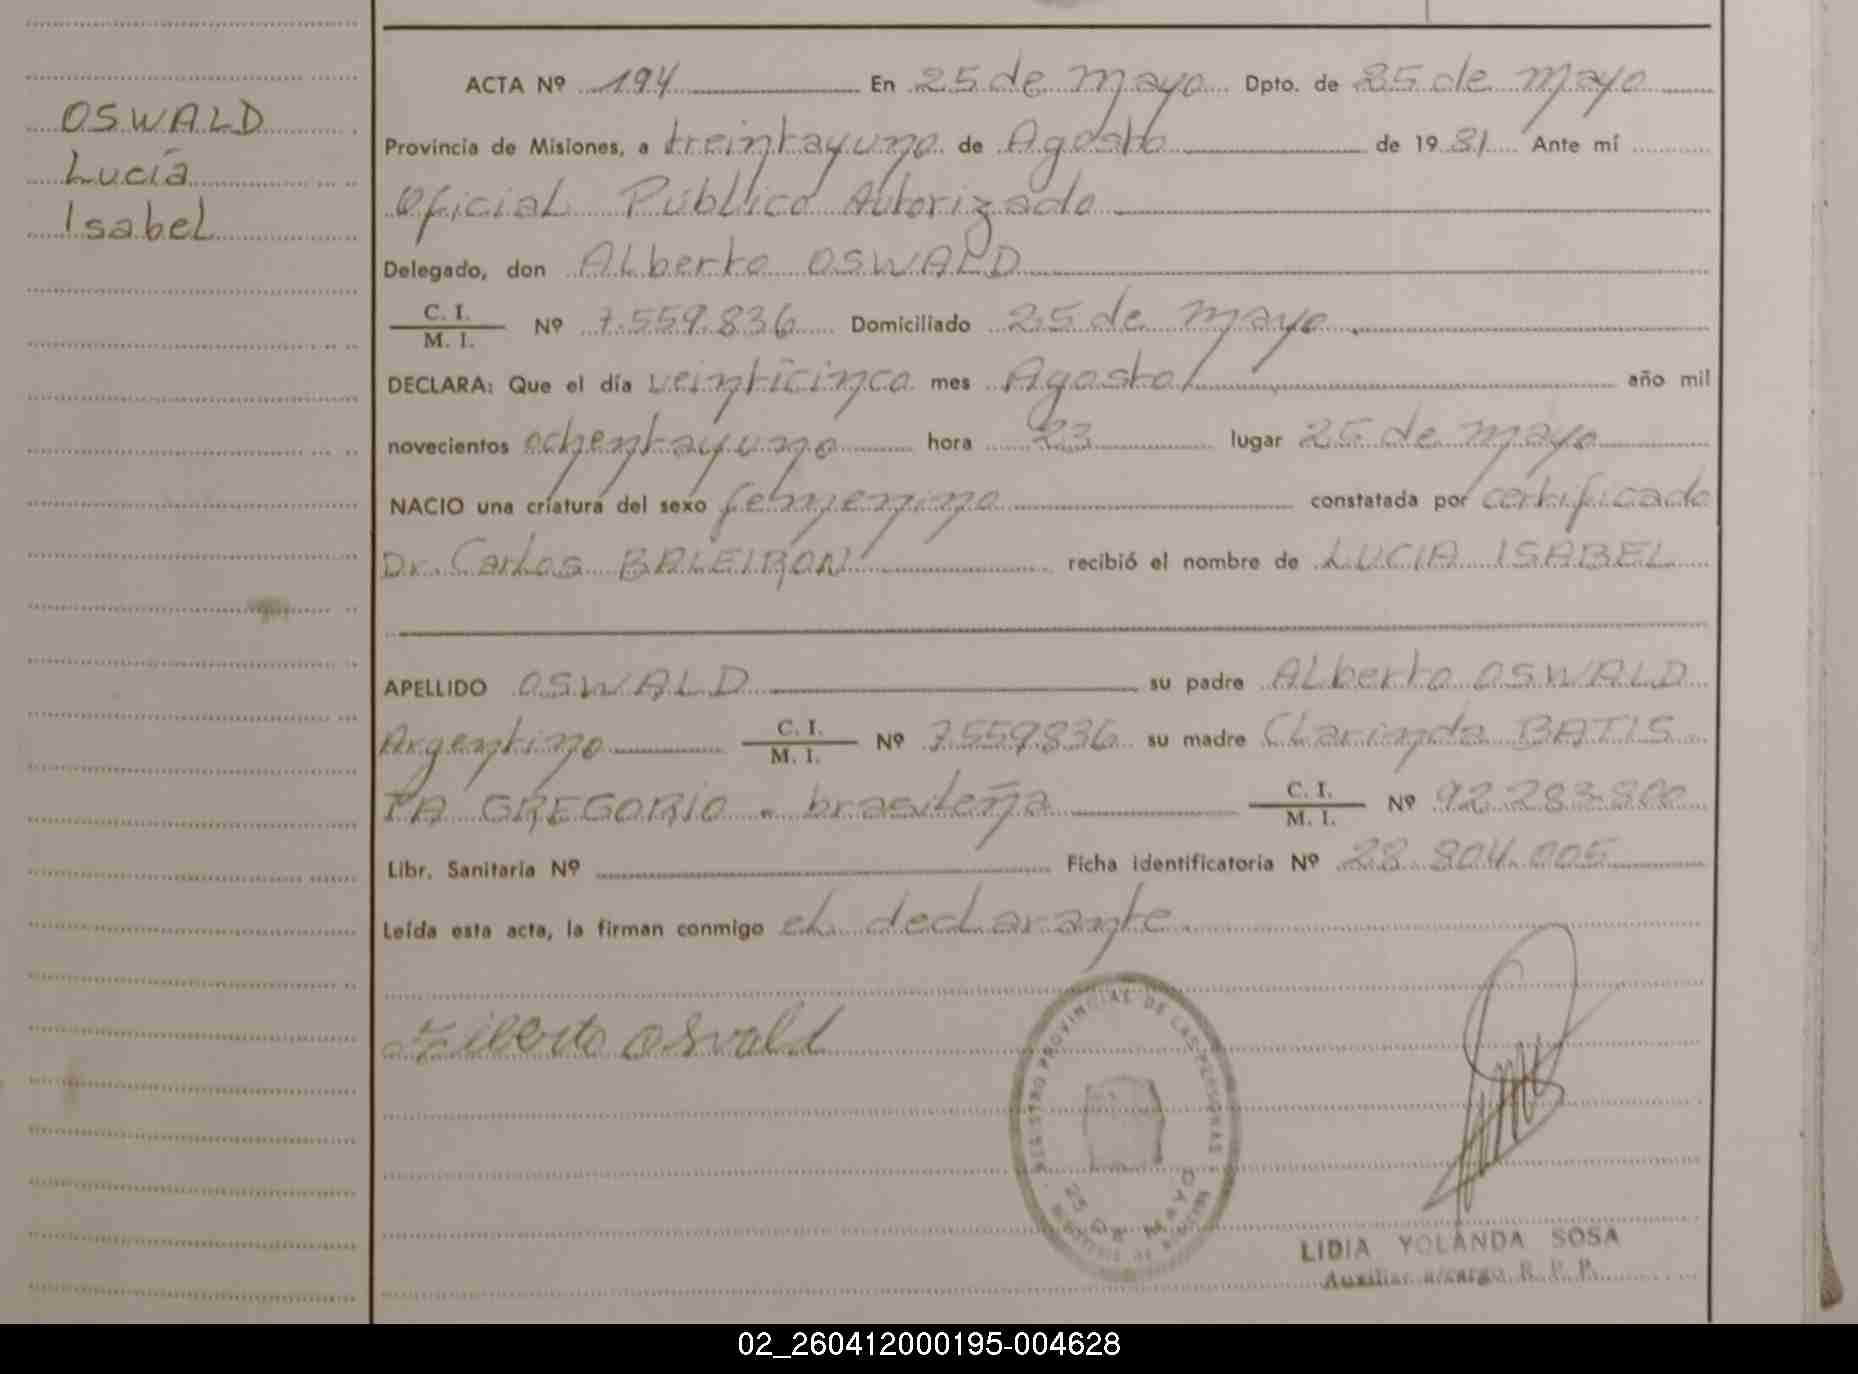 OSWALD
Lucía
Isabel
ACTA Nº 194 En 25 de mayo Dpto. de 25 de mayo
Provincia de Misiones, a treintayuno de Agosto de 1981 Ante mí
Oficial Público Autorizado
Delegado, don Alberto OSWALD
C. I.
M. I. Nº 7.559.836 Domiciliado 25 de mayo
DECLARA: Que el día veinticinco mes Agosto año mil
novecientos ochentayuno hora 23 lugar 25 de mayo
NACIO una criatura del sexo femenino constatada por certificado
Dr. Carlos BALEIRON recibió el nombre de LUCIA ISABEL
APELLIDO OSWALD su padre Alberto OSWALD
Argentino C. I.
M. I. Nº 7.559.836 su madre Clarinda BATIS
TA GREGORIO - brasileña C. I.
M. I. Nº 92.283.800
Libr. Sanitaria Nº Ficha identificatoria Nº 28.804.005
Leída esta acta, la firman conmigo el declarante
Alberto Oswald
REGISTRO PROVINCIAL DE LAS PERSONAS
25 DE MAYO
LIDIA YOLANDA SOSA
Auxiliar a/cargo R. P. P.
02_260412000195-004628